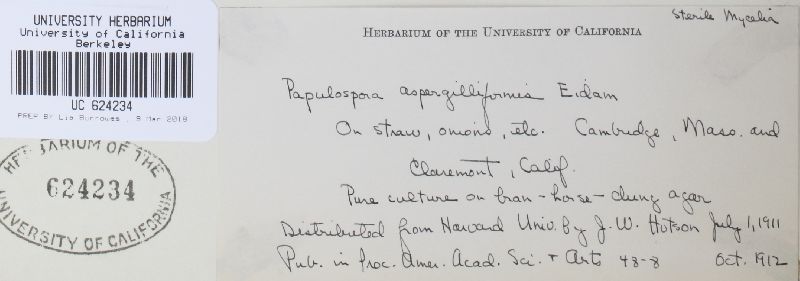 UNIVERSITY HERBARIUM
University of California
Berkeley
UC 624234
PREP BY Lia Burrowes , 8 Mar 2018
HERBARIUM OF THE
624234
UNIVERSITY OF CALIFORNIA
Sterile Mycelia
HERBARIUM OF THE UNIVERSITY OF CALIFORNIA
Papulospora aspergilliformis Eidam
On straw, onions, etc. Cambridge, Mass. and
Claremont, Calif.
Pure culture on bran-horse-dung agar
Distributed from Harvard Univ. by J. W. Hotson July 1, 1911
Pub. in Proc. Amer. Acad. Sci. + Arts 48-8 Oct. 1912